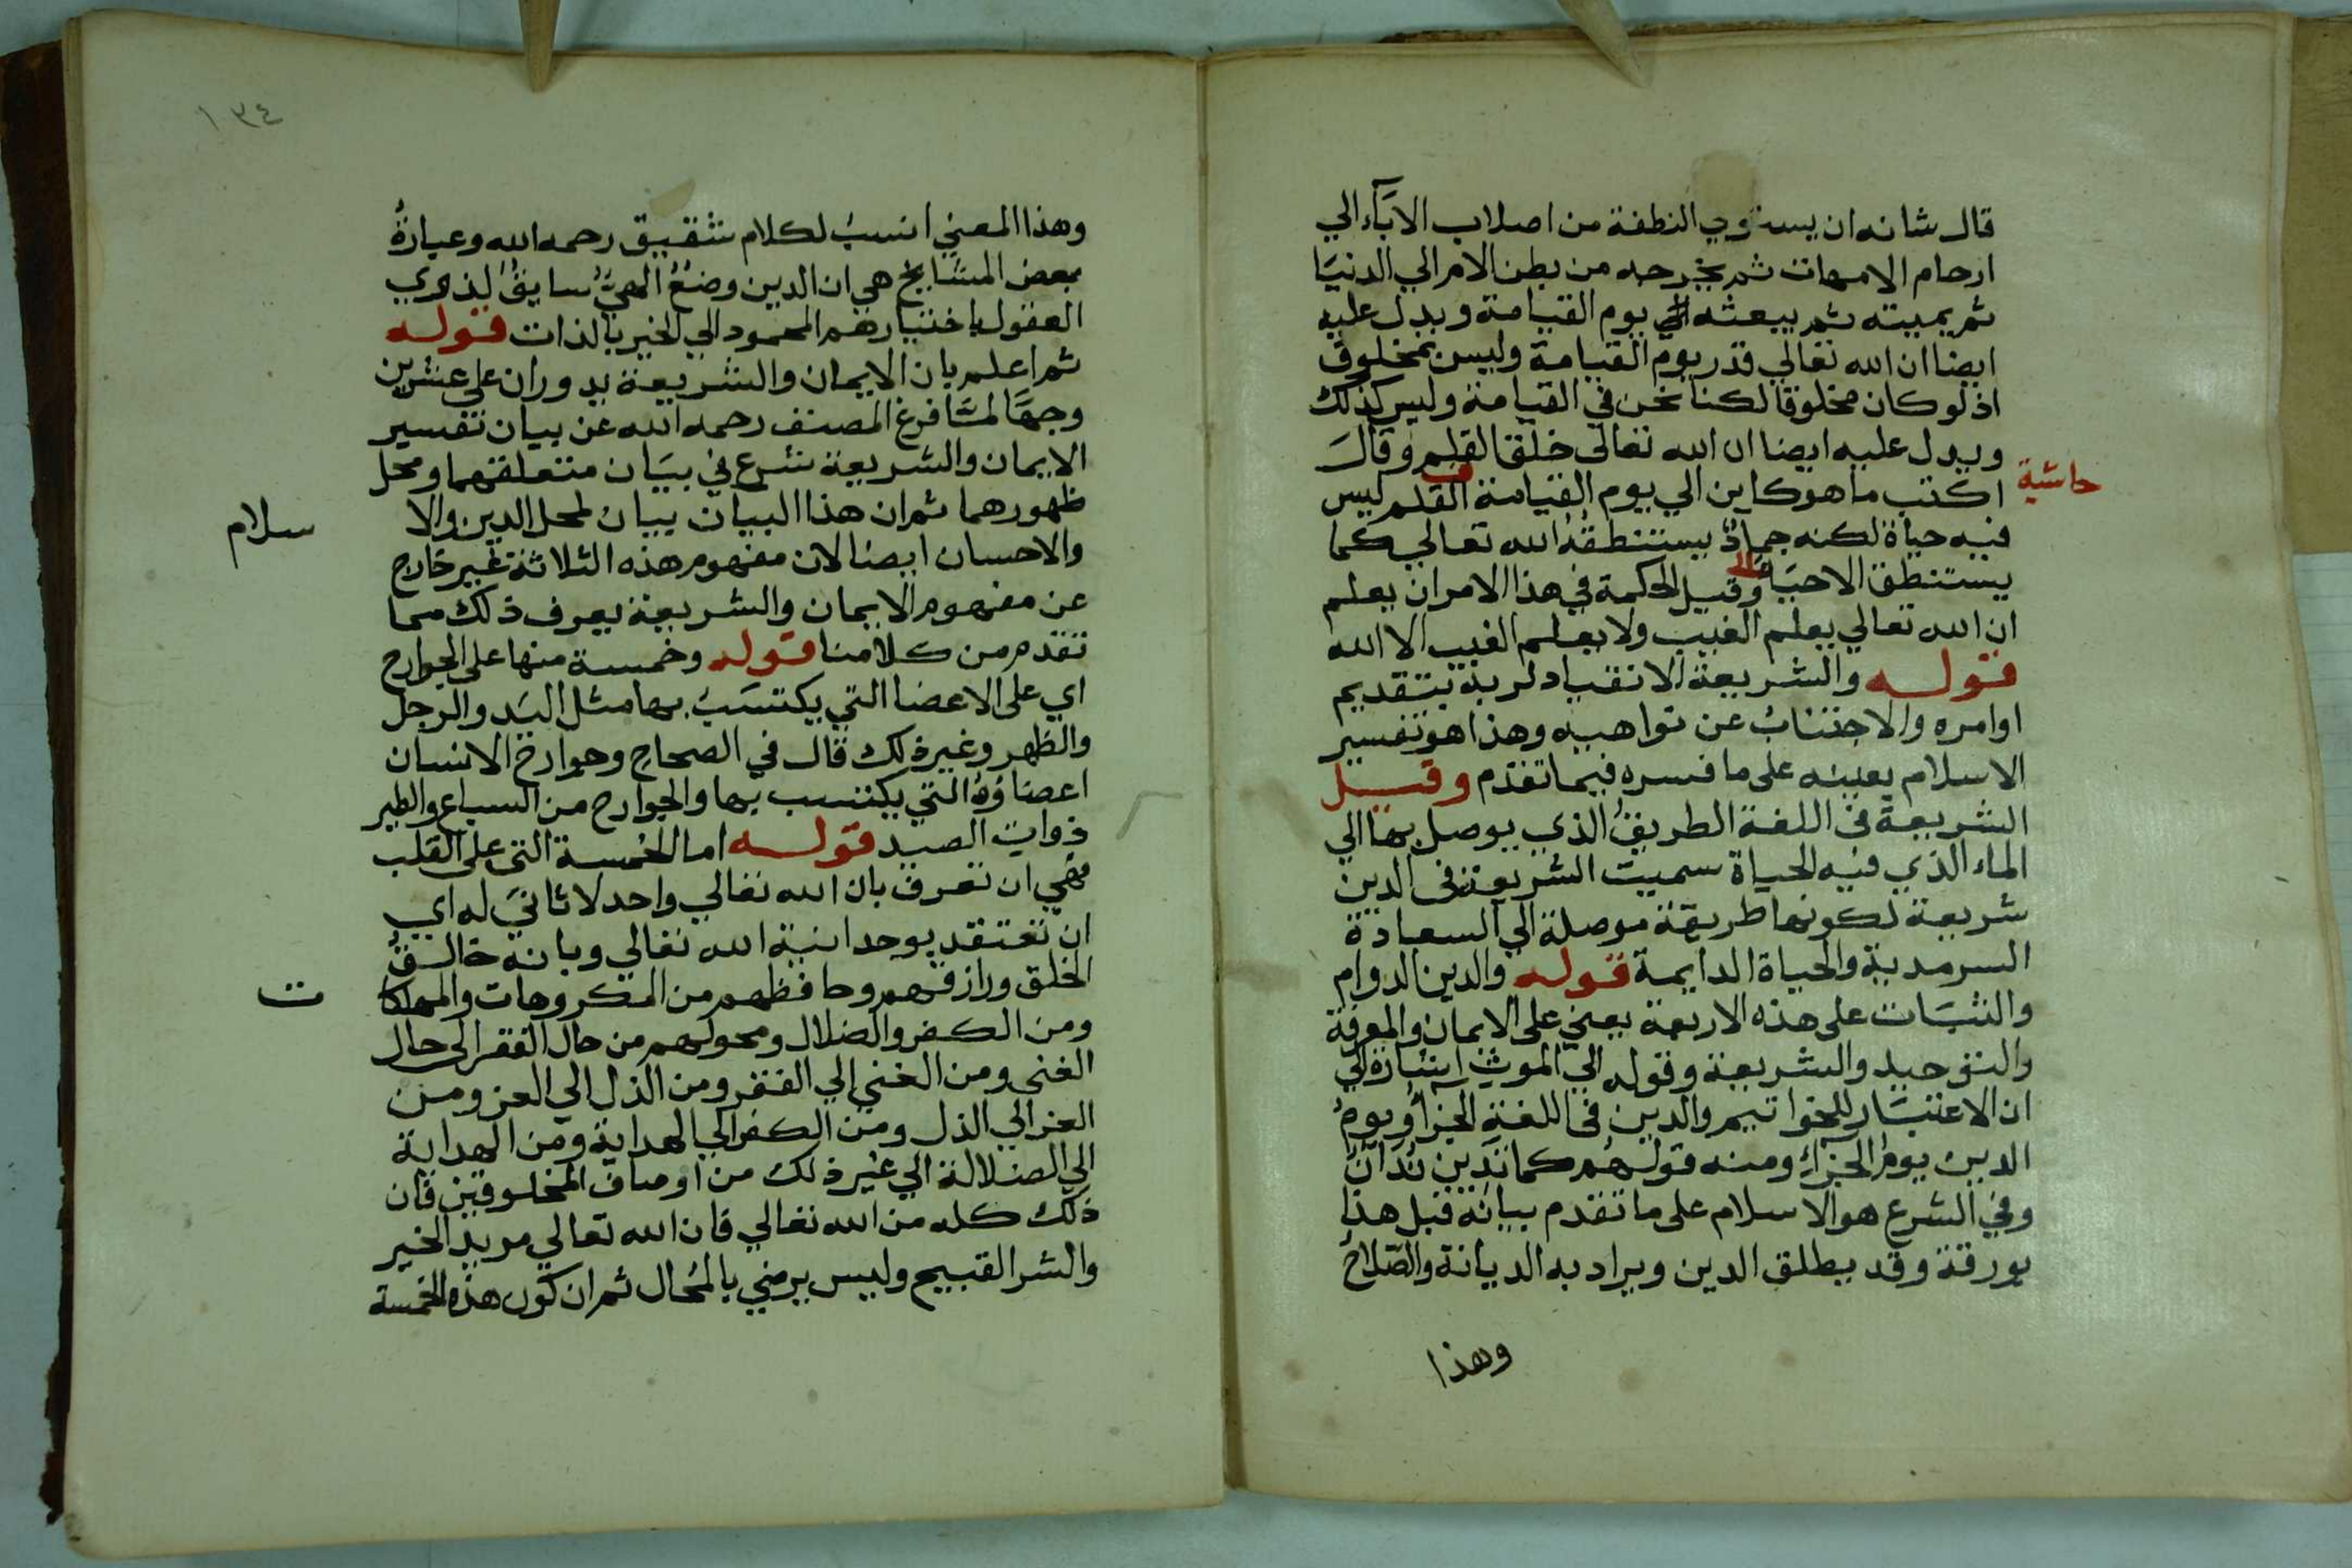 قال شانه ان يستوي النطفة من اصلاب الاباء الي
ارحام الامهات ثم يخرجه من بطن الامر الي الدنيا
ثم يميته ثم يبعثه الي يوم القيامة ويدل عليه
ايضا ان الله تعالي قدر يوم القيامة وليس بمخلوق
اذ لو كان مخلوقا لكنا نحن في القيامة وليس كذلك
ويدل عليه ايضا ان الله تعالى خلق القلم وقال
حاشية
اكتب ما هو كاين الي يوم القيامة القلم ليس
فيه حياة لكنه جماد يستنطقه الله تعالي كما
يستنطق الاحياء وقيل الحكمة في هذا الامر ان يعلم
ان الله تعالي يعلم الغيب ولا يعلم الغيب الا الله
قوله والشريعة الانقياد لربه بتقديم
اوامره والاجتناب عن نواهيه وهذا هو تفسير
الاسلام بعينه على ما فسره فيما تقدم وقيل
الشريعة فى اللغة الطريق الذي يوصل بها الي
الماء الذي فيه الحياة سميت الشريعة فى الدين
شريعة لكونها طريقة موصلة الي السعادة
السرمدية والحياة الدايمة قوله والدين الدوام
والثبات على هذه الاربعة يعني على الايمان والمعرفة
والتوحيد والشريعة وقوله الي الموت اشارة الي
ان الاعتبار للخواتيم والدين فى اللغة الجزآ ويوم
الدين يوم الجزاء ومنه قولهم كما تدين تدان
وفي الشرع هو الاسلام على ما تقدم بيانه قبل هذا
بورقة وقد يطلق الدين ويراد به الديانة والصلاح
وهذا
١٣٤
وهذا المعني انسب لكلام شقيق رحمه الله وعبارة
بعض المشايخ هي ان الدين وضع الهي سايق لذوي
العقول باختيارهم المحمود الي الخير بالذات قوله
ثم اعلم بان الايمان والشريعة يدوران على عشرين
وجها لما فرغ المصنف رحمه الله عن بيان تفسير
الايمان والشريعة شرع في بيان متعلقهما ومحل
ظهورهما ثم ان هذا البيان بيان لمحل الدين والا
سلام
والاحسان ايضا لان مفهوم هذه الثلاثة غير خارج
عن مفهوم الايمان والشريعة يعرف ذلك مما
تقدم من كلامنا قوله وخمسة منها على الجوارح
اي على الاعضا التي يكتسب بها مثل اليد والرجل
والظهر وغير ذلك قال في الصحاح وجوارح الانسان
اعضاؤه التي يكتسب بها والجوارح من السباع والطير
ذوات الصيد قوله اما الخمسة التى على القلب
فهي ان تعرف بان الله تعالي واحد لا ثاني له اي
ان تعتقد بوحدانية الله تعالي وبانه خالق
الخلق ورازقهم وحافظهم من المكروهات والمهلكا
ت
ومن الكفر والضلال ومحولهم من حال الفقر الى حال
الغنى ومن الغني الي الفقر ومن الذل الي العز ومن
العز الي الذل ومن الكفر الي الهداية ومن الهداية
الي الضلالة الي غير ذلك من اوصاف المخلوقين فان
ذلك كله من الله تعالي فان الله تعالي مريد الخير
والشر القبيح وليس يرضي بالمحال ثم ان كون هذه الخمسة